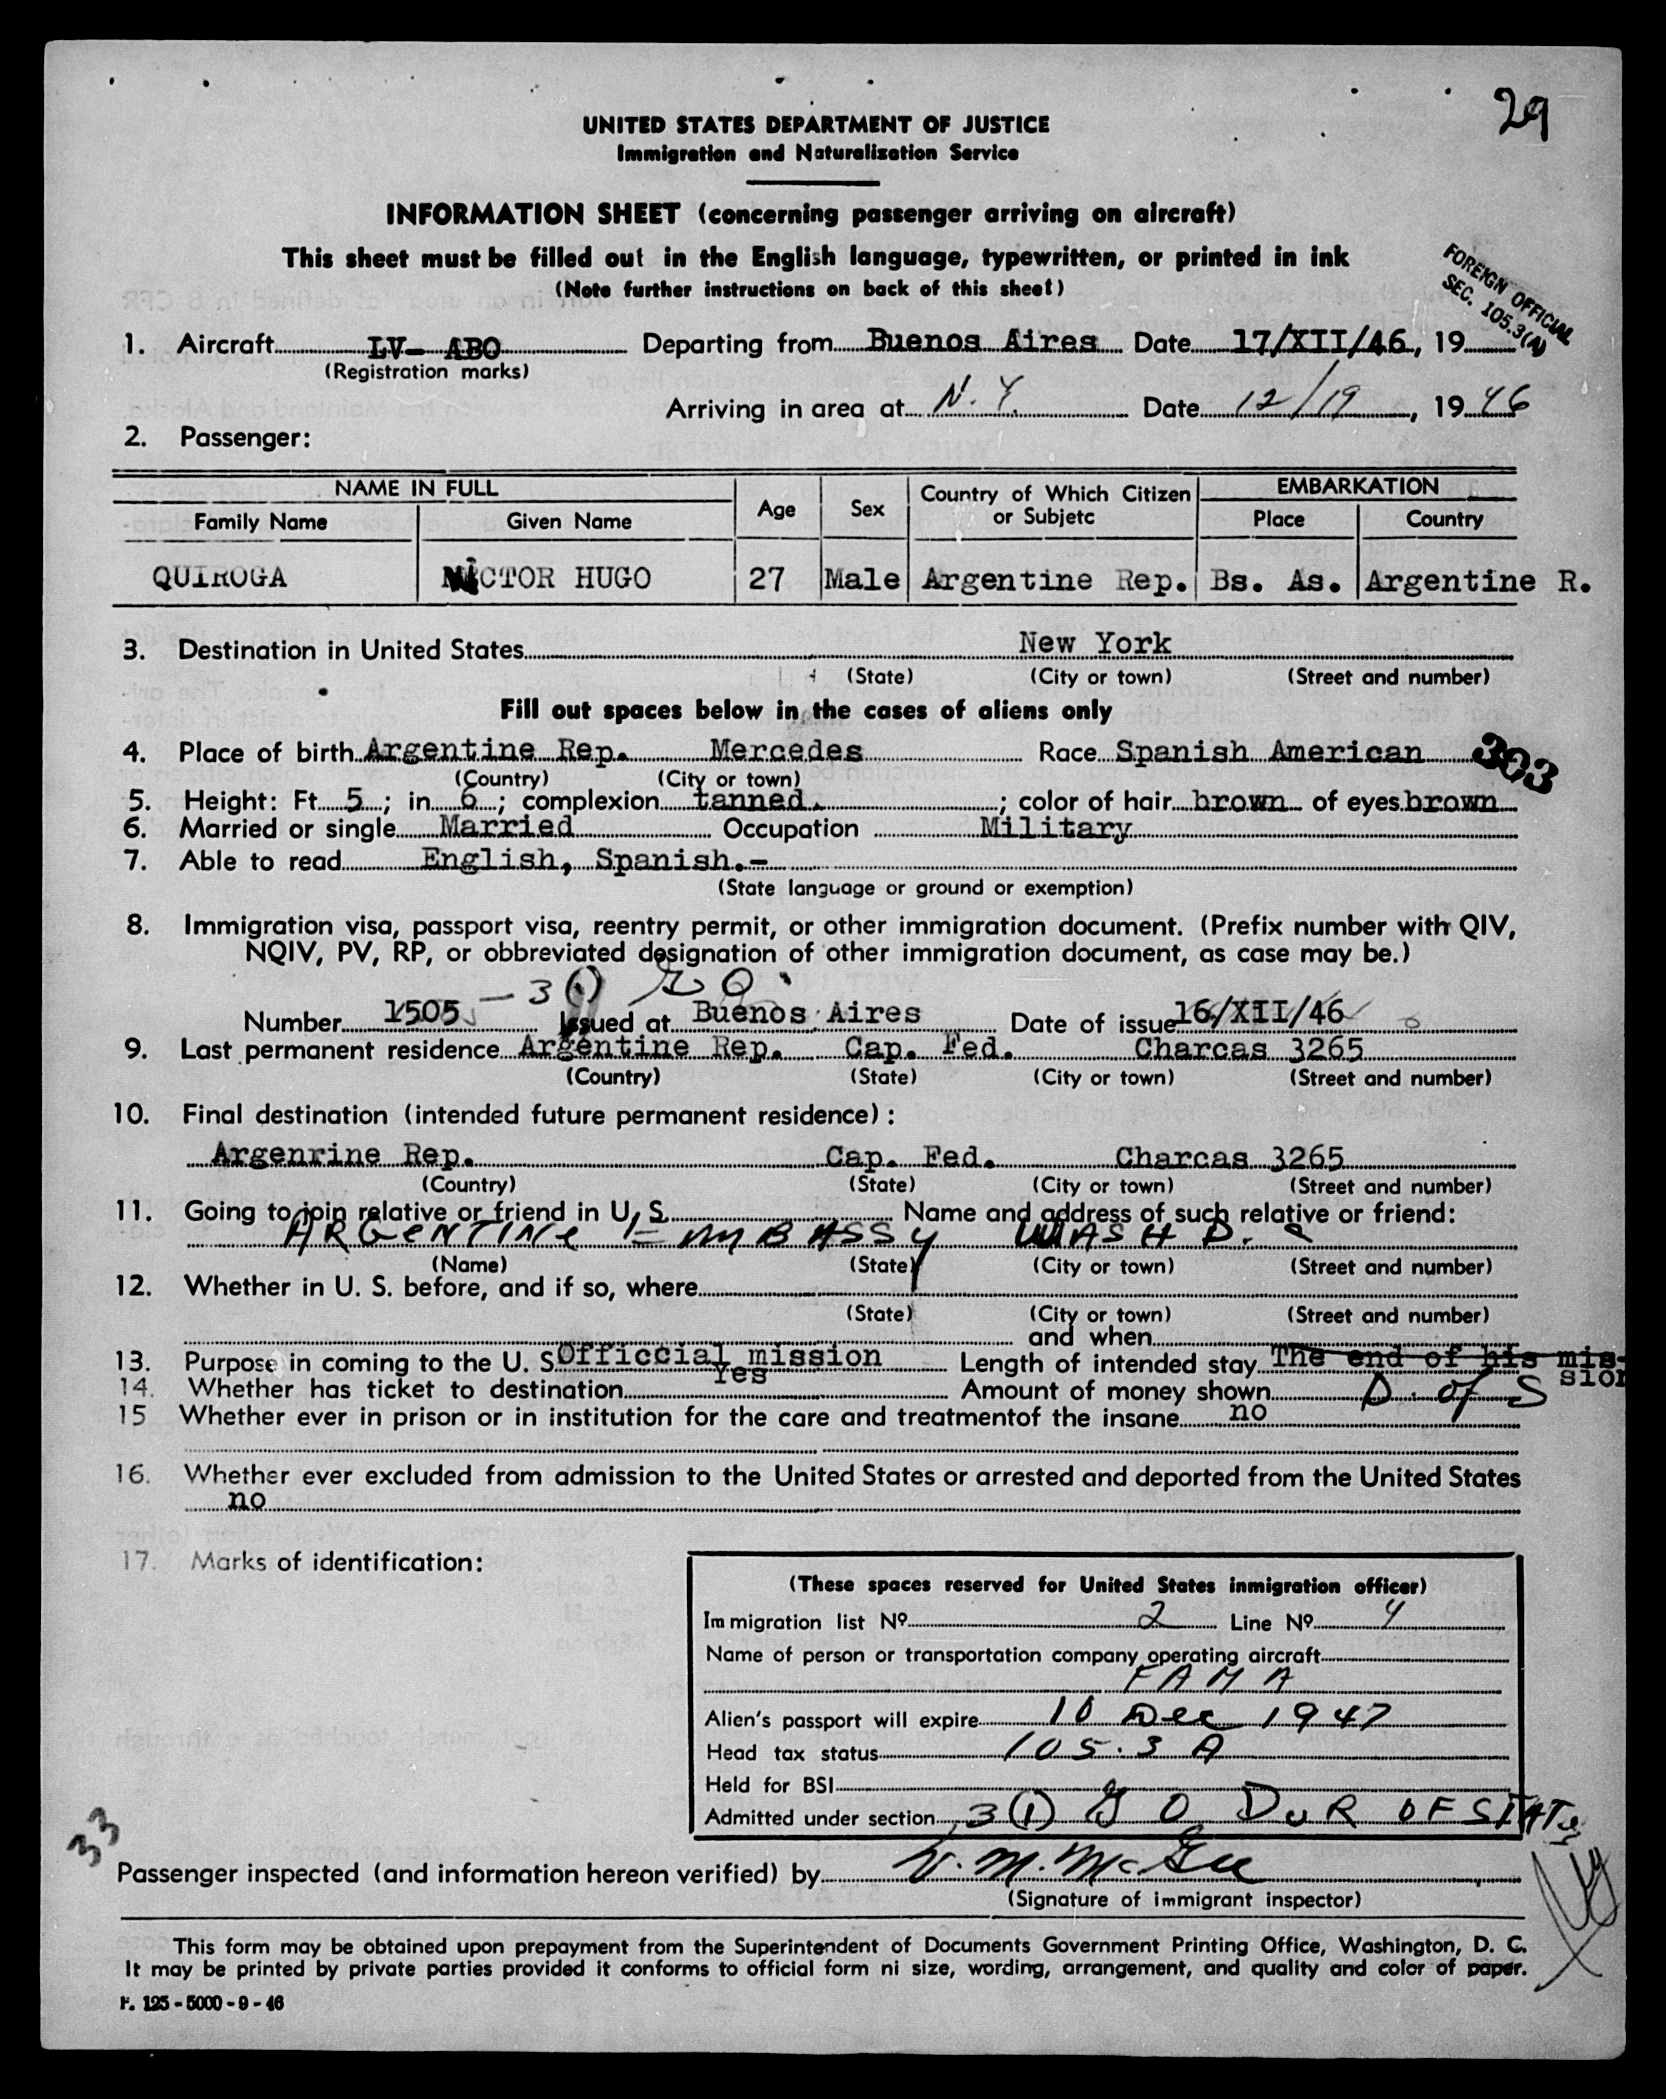 29
UNITED STATES DEPARTMENT OF JUSTICE
Immigration and Naturalization Service
INFORMATION SHEET (concerning passenger arriving on aircraft)
This sheet must be filled out in the English language, typewritten, or printed in ink
(Note further instructions on back of this sheet)
FOREIGN OFFICIAL
SEC. 105.3(A)
1. Aircraft LV- ABO Departing from Buenos Aires Date 17/XII/46, 19
(Registration marks)
Arriving in area at N. Y. Date 12/19, 1946
2. Passenger:
NAME IN FULL Age Sex Country of Which Citizen or Subjetc EMBARKATION
Family Name Given Name Place Country
QUIROGA VICTOR HUGO 27 Male Argentine Rep. Bs. As. Argentine R.
3. Destination in United States New York
(State) (City or town) (Street and number)
Fill out spaces below in the cases of aliens only
4. Place of birth Argentine Rep. Mercedes Race Spanish American 303
(Country) (City or town)
5. Height: Ft. 5; in. 6; complexion tanned. ; color of hair brown of eyes brown
6. Married or single Married Occupation Military
7. Able to read English, Spanish.-
(State language or ground or exemption)
8. Immigration visa, passport visa, reentry permit, or other immigration document. (Prefix number with QIV,
NQIV, PV, RP, or obbreviated designation of other immigration document, as case may be.)
Number 1505 - 3(1) Issued at Buenos Aires Date of issue 16/XII/46
9. Last permanent residence Argentine Rep. Cap. Fed. Charcas 3265
(Country) (State) (City or town) (Street and number)
10. Final destination (intended future permanent residence):
Argenrine Rep. Cap. Fed. Charcas 3265
(Country) (State) (City or town) (Street and number)
11. Going to join relative or friend in U. S. Name and address of such relative or friend:
ARGENTINE EMBASSY WASH D. C
(Name) (State) (City or town) (Street and number)
12. Whether in U. S. before, and if so, where
(State) (City or town) (Street and number)
and when
13. Purpose in coming to the U. S. Officcial mission Length of intended stay The end of his mission
14. Whether has ticket to destination Yes Amount of money shown D. of S
15 Whether ever in prison or in institution for the care and treatmentof the insane no
16. Whether ever excluded from admission to the United States or arrested and deported from the United States
no
17. Marks of identification:
(These spaces reserved for United States inmigration officer)
Immigration list Nº 2 Line Nº 4
Name of person or transportation company operating aircraft
FAMA
Alien's passport will expire 10 Dec 1947
Head tax status 105.3 A
Held for BSI
Admitted under section 3(1) G O DUR OF STATUS
33
Passenger inspected (and information hereon verified) by W. M. McGee
(Signature of immigrant inspector)
This form may be obtained upon prepayment from the Superintendent of Documents Government Printing Office, Washington, D. C.
It may be printed by private parties provided it conforms to official form ni size, wording, arrangement, and quality and color of paper.
F. 125 - 5000 - 9 - 46